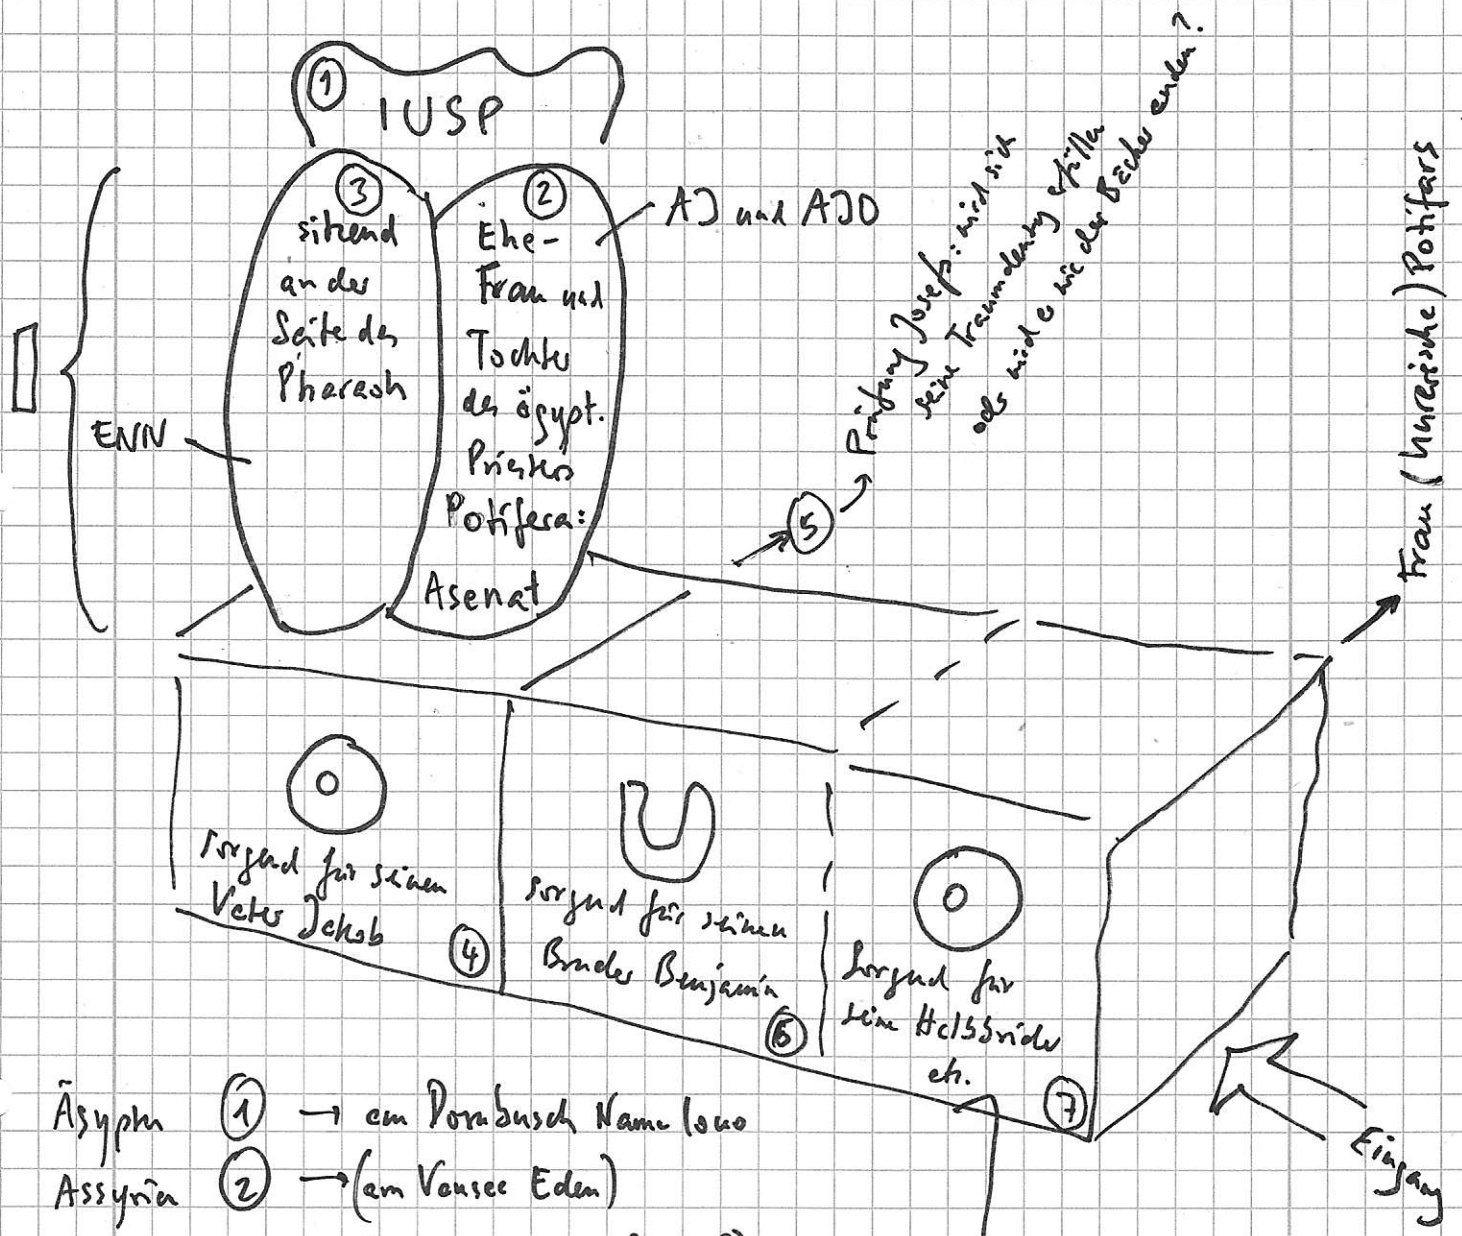 ① IUSP
③
sitzend
an der
Seite des
Pharaoh
②
Ehe-
Frau und
Tochter
des ägypt.
Priesters
Potifera:
Asenat
AJ und AJO
ENN
⑤ → Prüfung Josefs: wird sich
seine Traumdeutung erfüllen
oder wird er wie der Bäcker enden?
Frau (hurerische) Potifars
sorgend für seinen
Vater Jakob
④
sorgend für seinen
Bruder Benjamin
⑥
Sorgend für
seine Halbbrüder
etc.
⑦
Eingang
Ägypten ① → am Dornbusch Name
Assyrien ② → (am Vansee Eden)